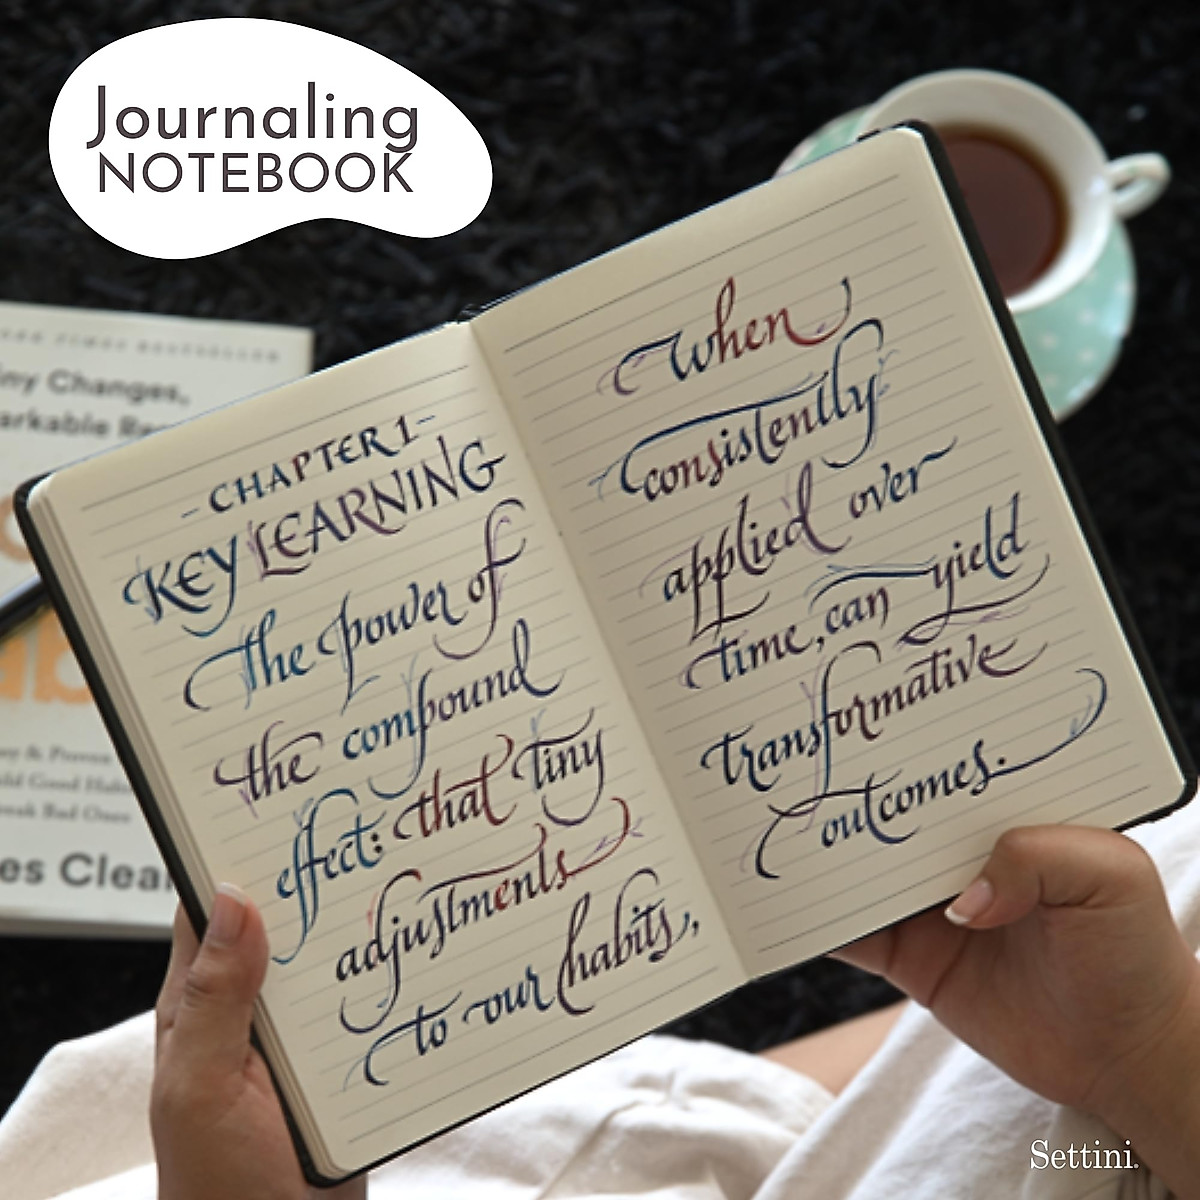 Journaling
NOTEBOOK
-CHAPTER 1-
KEY LEARNING
The power of
the compound
effect: that tiny
adjustments
to our habits,
When
consistently
applied over
time, can yield
transformative
outcomes.
iny Changes,
arkable Re
ab
es Clear
Settini